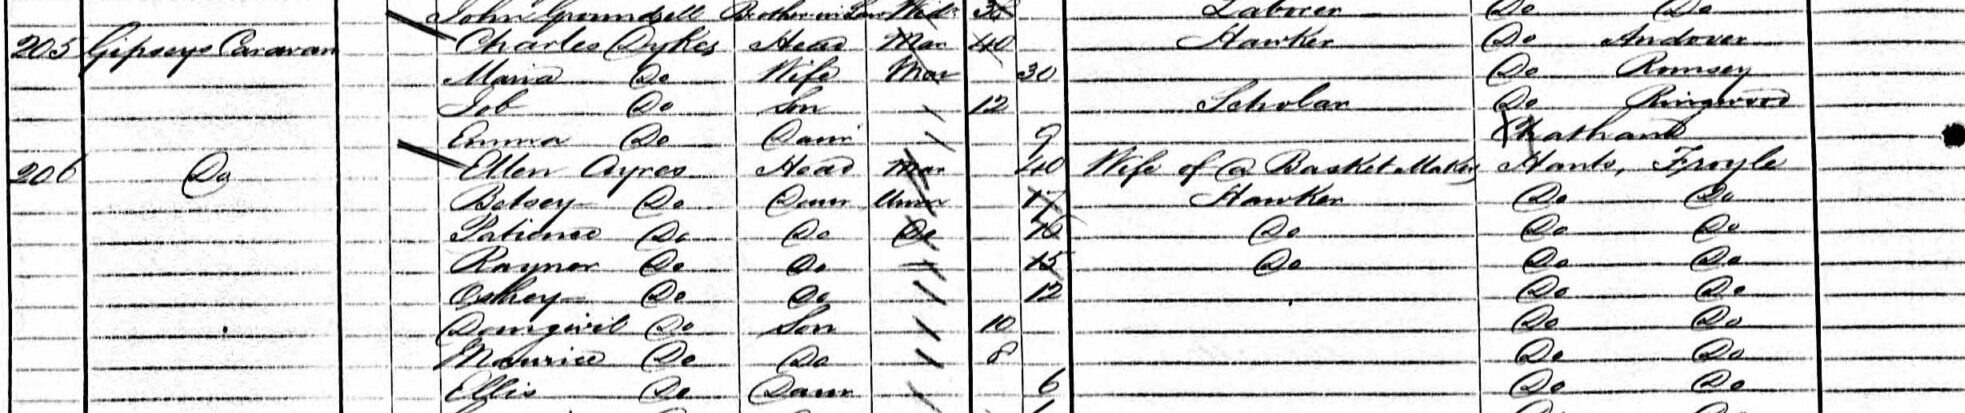 John Groundsell Brother in Law Wid 38 Laborer Do Do
205 Gipseys Caravan Charles Dykes Head Mar 40 Hawker Do Andover
Maria Do Wife Mar 30 Do Romsey
Job Do Son 12 Scholar Do Ringwood
Emma Do Daur 9 Chatham
206 Do Ellen Ayres Head Mar 40 Wife of a Basket Maker Hants, Froyle
Betsey Do Daur Unm 17 Hawker Do Do
Patience Do Do Do 16 Do Do Do
Raynor Do Do 15 Do Do Do
Do Do 12 Do Do
Do Son 10 Do Do
Maurice Do Do 8 Do Do
Ellis Do Daur 6 Do Do